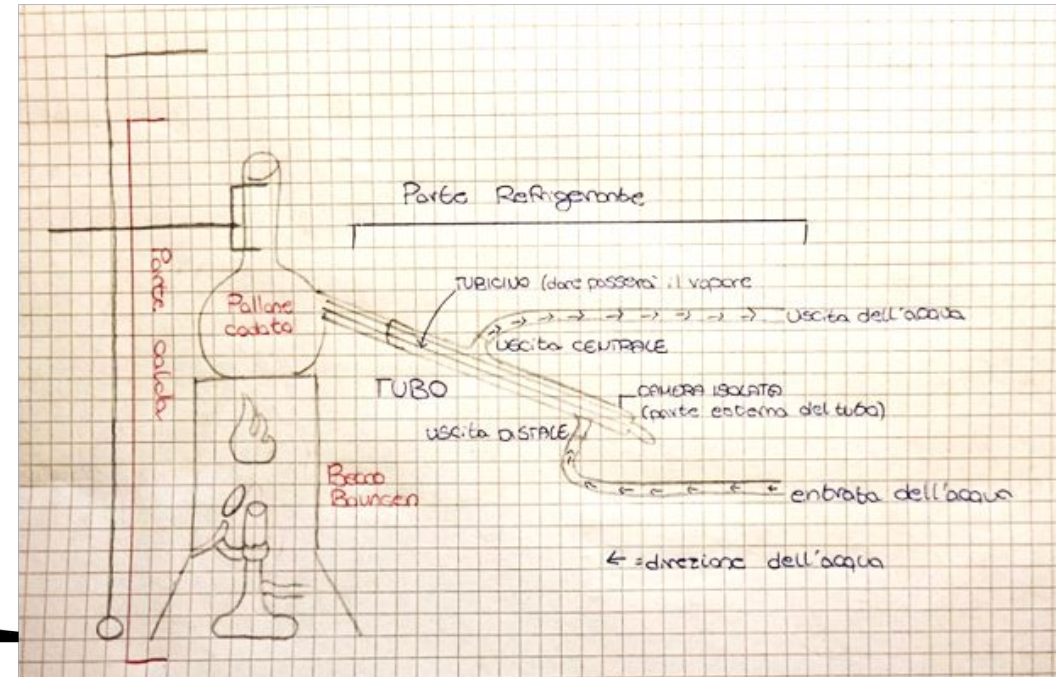 Parte Refrigerante
Parte calda
Pallone
codato
TUBICINO (dove passerà il vapore
Uscita dell'acqua
USCita CENTRALE
TUBO
CAMERA ISOLATA
(parte esterna del tubo)
USCita DISTALE
Becco
Bauncen
entrata dell'acqua
← =direzione dell'acqua